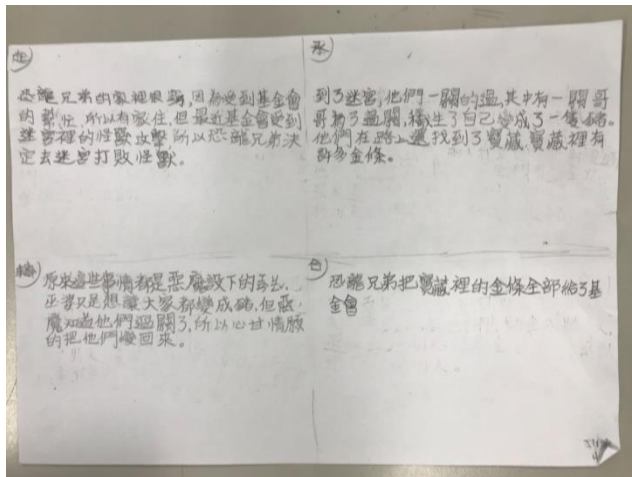 起
恐龍兄弟的家裡很窮,因為受到基金會
的幫忙,所以有家住,但最近基金會受到
迷宮裡的怪獸攻擊,所以恐龍兄弟決
定去迷宮打敗怪獸。
承
到了迷宮,他們一關一關的過,其中有一關哥
哥為了過關,犧牲了自己變成了一隻豬。
他們在路上還找到了寶藏,寶藏裡有
許多金條。
轉
原來這些事情都是惡魔設下的
巫婆只是想讓大家都變成豬,但惡
魔知道他們過關了,所以心甘情願
的把他們變回來。
合
恐龍兄弟把寶藏裡的金條全部給了基
金會